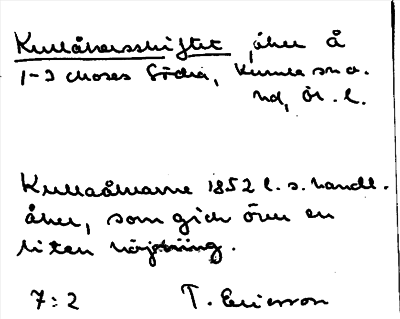 Kullåkersskiftet, åker å
1-3 Moses Södra, Kumla sn o.
hd, Ör. l.
Kullaåkrarne 1852 l. s. handl.
åker, som gick över en
liten höjning.
7:2 T. Ericsson